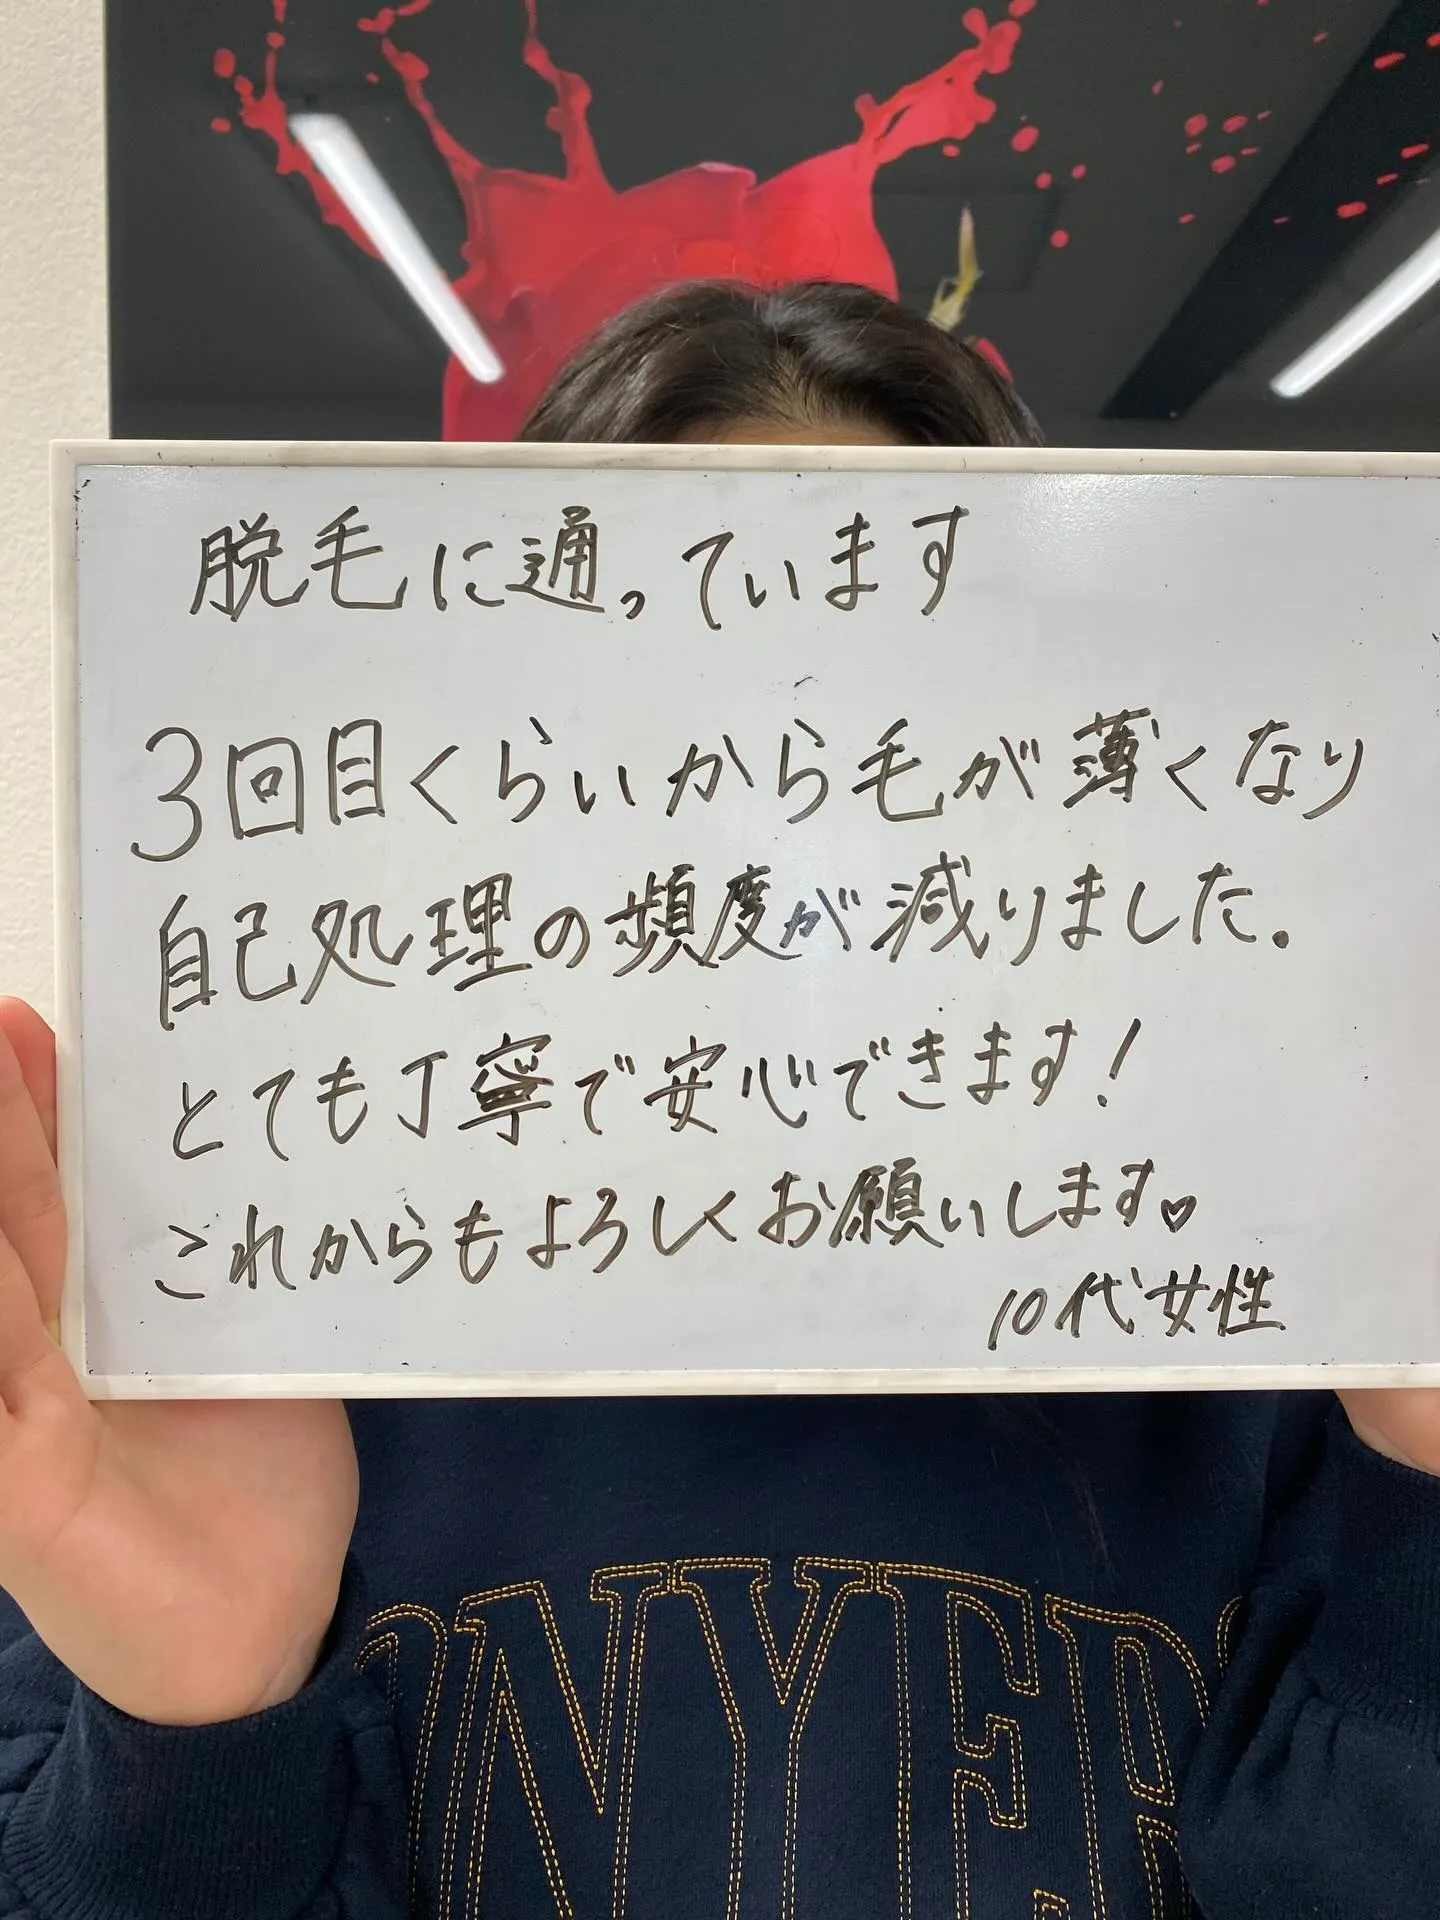 脱毛に通っています
3回目くらいから毛が薄くなり
自己処理の頻度が減りました。
とても丁寧で安心できます!
これからもよろしくお願いします♡
10代女性
NYER